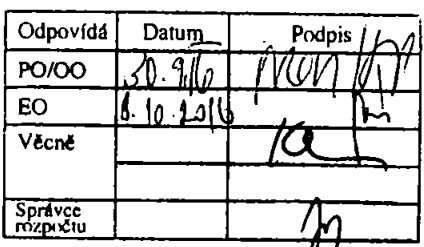 Odpovídá Datum Podpis
PO/OO 30. 9.16
EO 6. 10. 2016
Věcně
Správce
rozpočtu